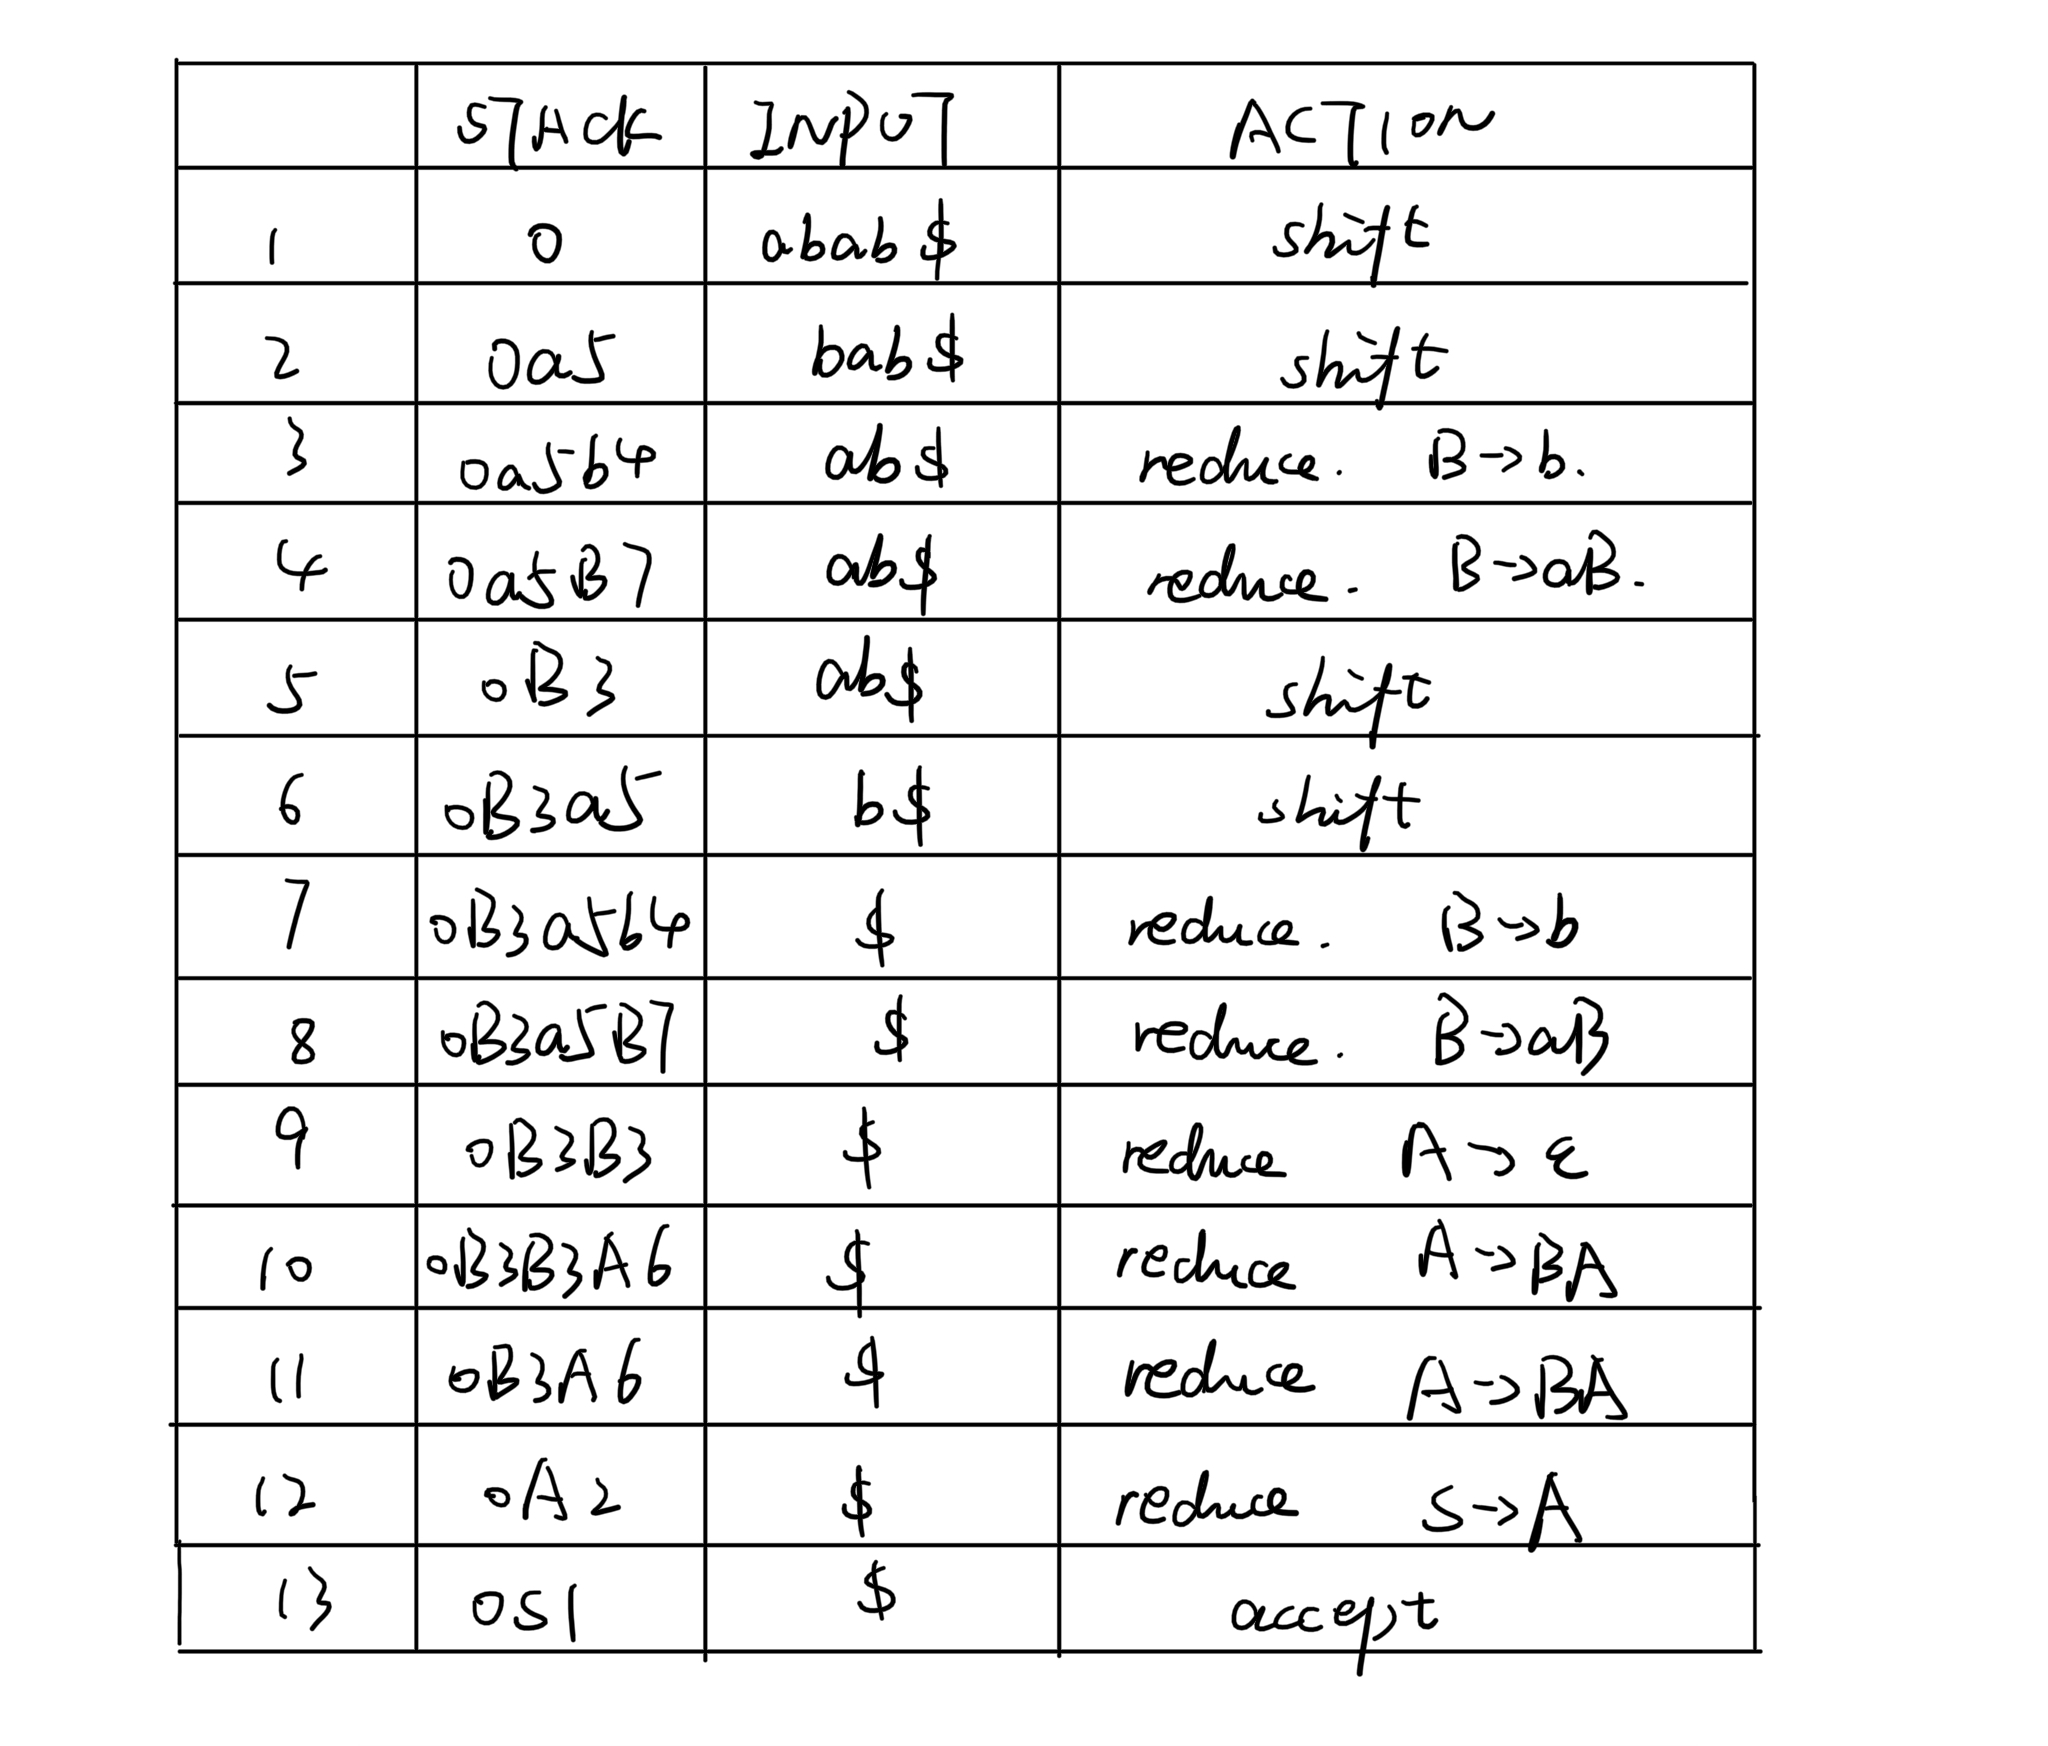 STACK INPUT ACTION
1 0 abab$ shift
2 0a5 bab$ shift
3 0a5b4 ab$ reduce. B→b.
4 0a5B7 ab$ reduce. B→aB.
5 0B3 ab$ shift
6 0B3a5 b$ shift
7 0B3a5b4 $ reduce. B→b
8 0B3a5B7 $ reduce. B→aB
9 0B3B3 $ reduce A→ε
10 0B3B3A6 $ reduce A→BA
11 0B3A6 $ reduce A→BA
12 0A2 $ reduce S→A
13 0S1 $ accept